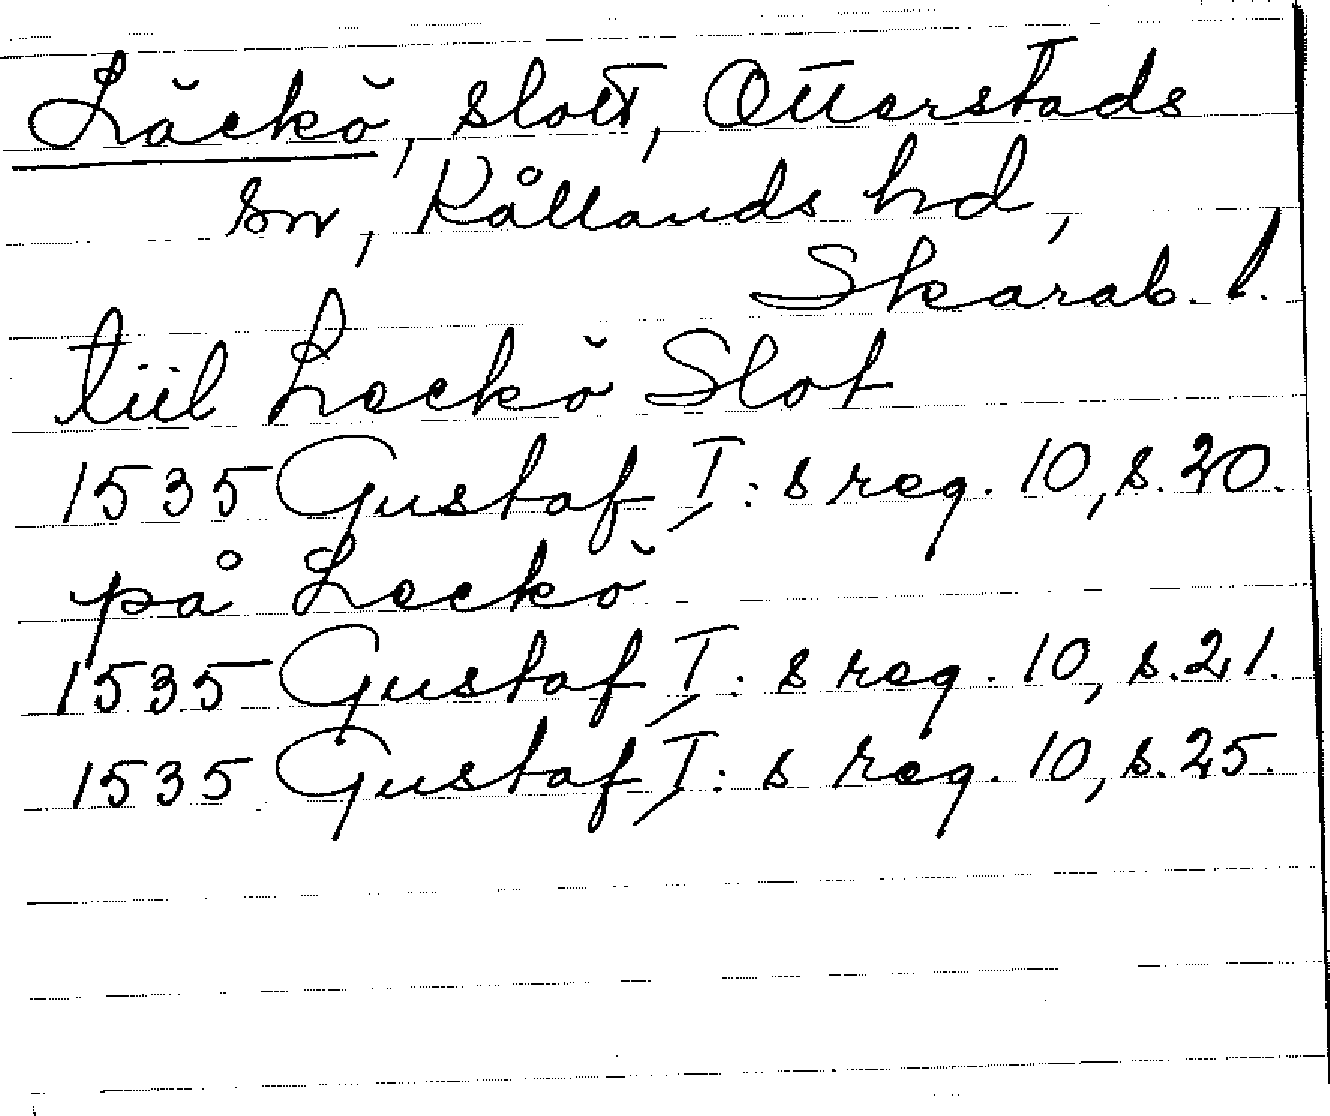 Läckö, slott, Otterstads
sn, Kållands hd,
Skarab. l.
tiil Leckö Slot
1535 Gustaf I:s reg. 10, s. 20.
på Leckö
1535 Gustaf I:s reg. 10, s. 21.
1535 Gustaf I:s reg. 10, s. 25.